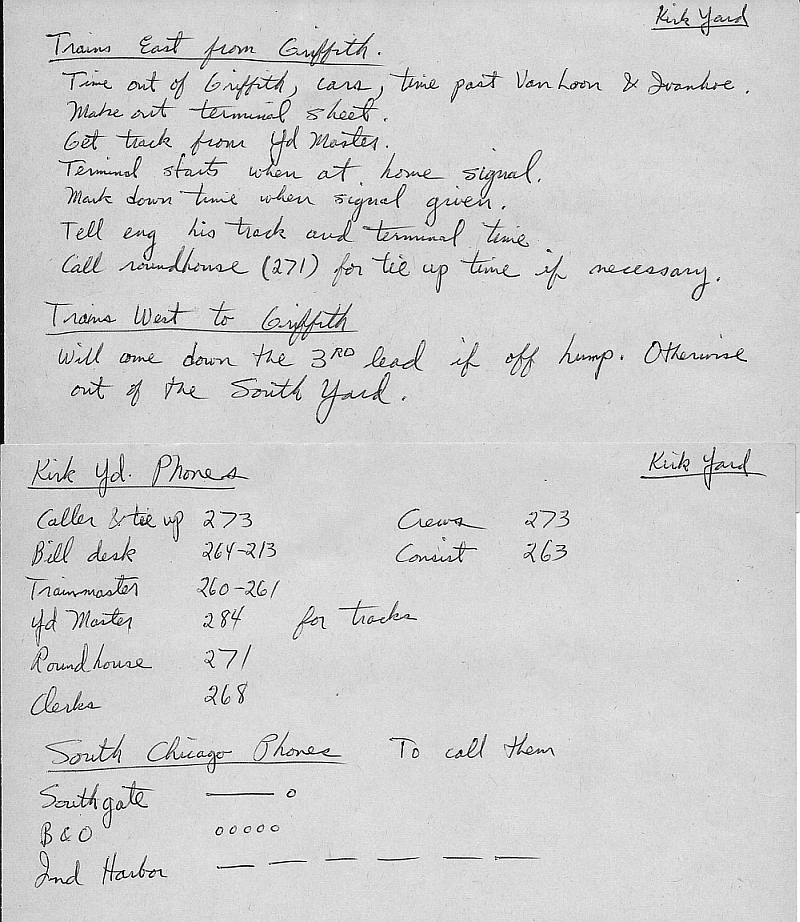 Kirk Yard
Trains East from Griffith.
Time out of Griffith, cars, time past Van Loon & Ivanhoe.
Make out terminal sheet.
Get track from Yd Master.
Terminal starts when at home signal.
Mark down time when signal given.
Tell eng his track and terminal time
Call roundhouse (271) for tie up time if necessary.
Trains West to Griffith
Will come down the 3RD lead if off hump. Otherwise
out of the South Yard.
Kirk Yd. Phones Kirk Yard
Caller & tie up 273 Crews 273
Bill desk 264-213 Consist 263
Trainmaster 260-261
Yd Master 284 for tracks
Roundhouse 271
Clerks 268
South Chicago Phones To call them
Southgate —— o
B&O ooooo
Ind Harbor — — — — — —